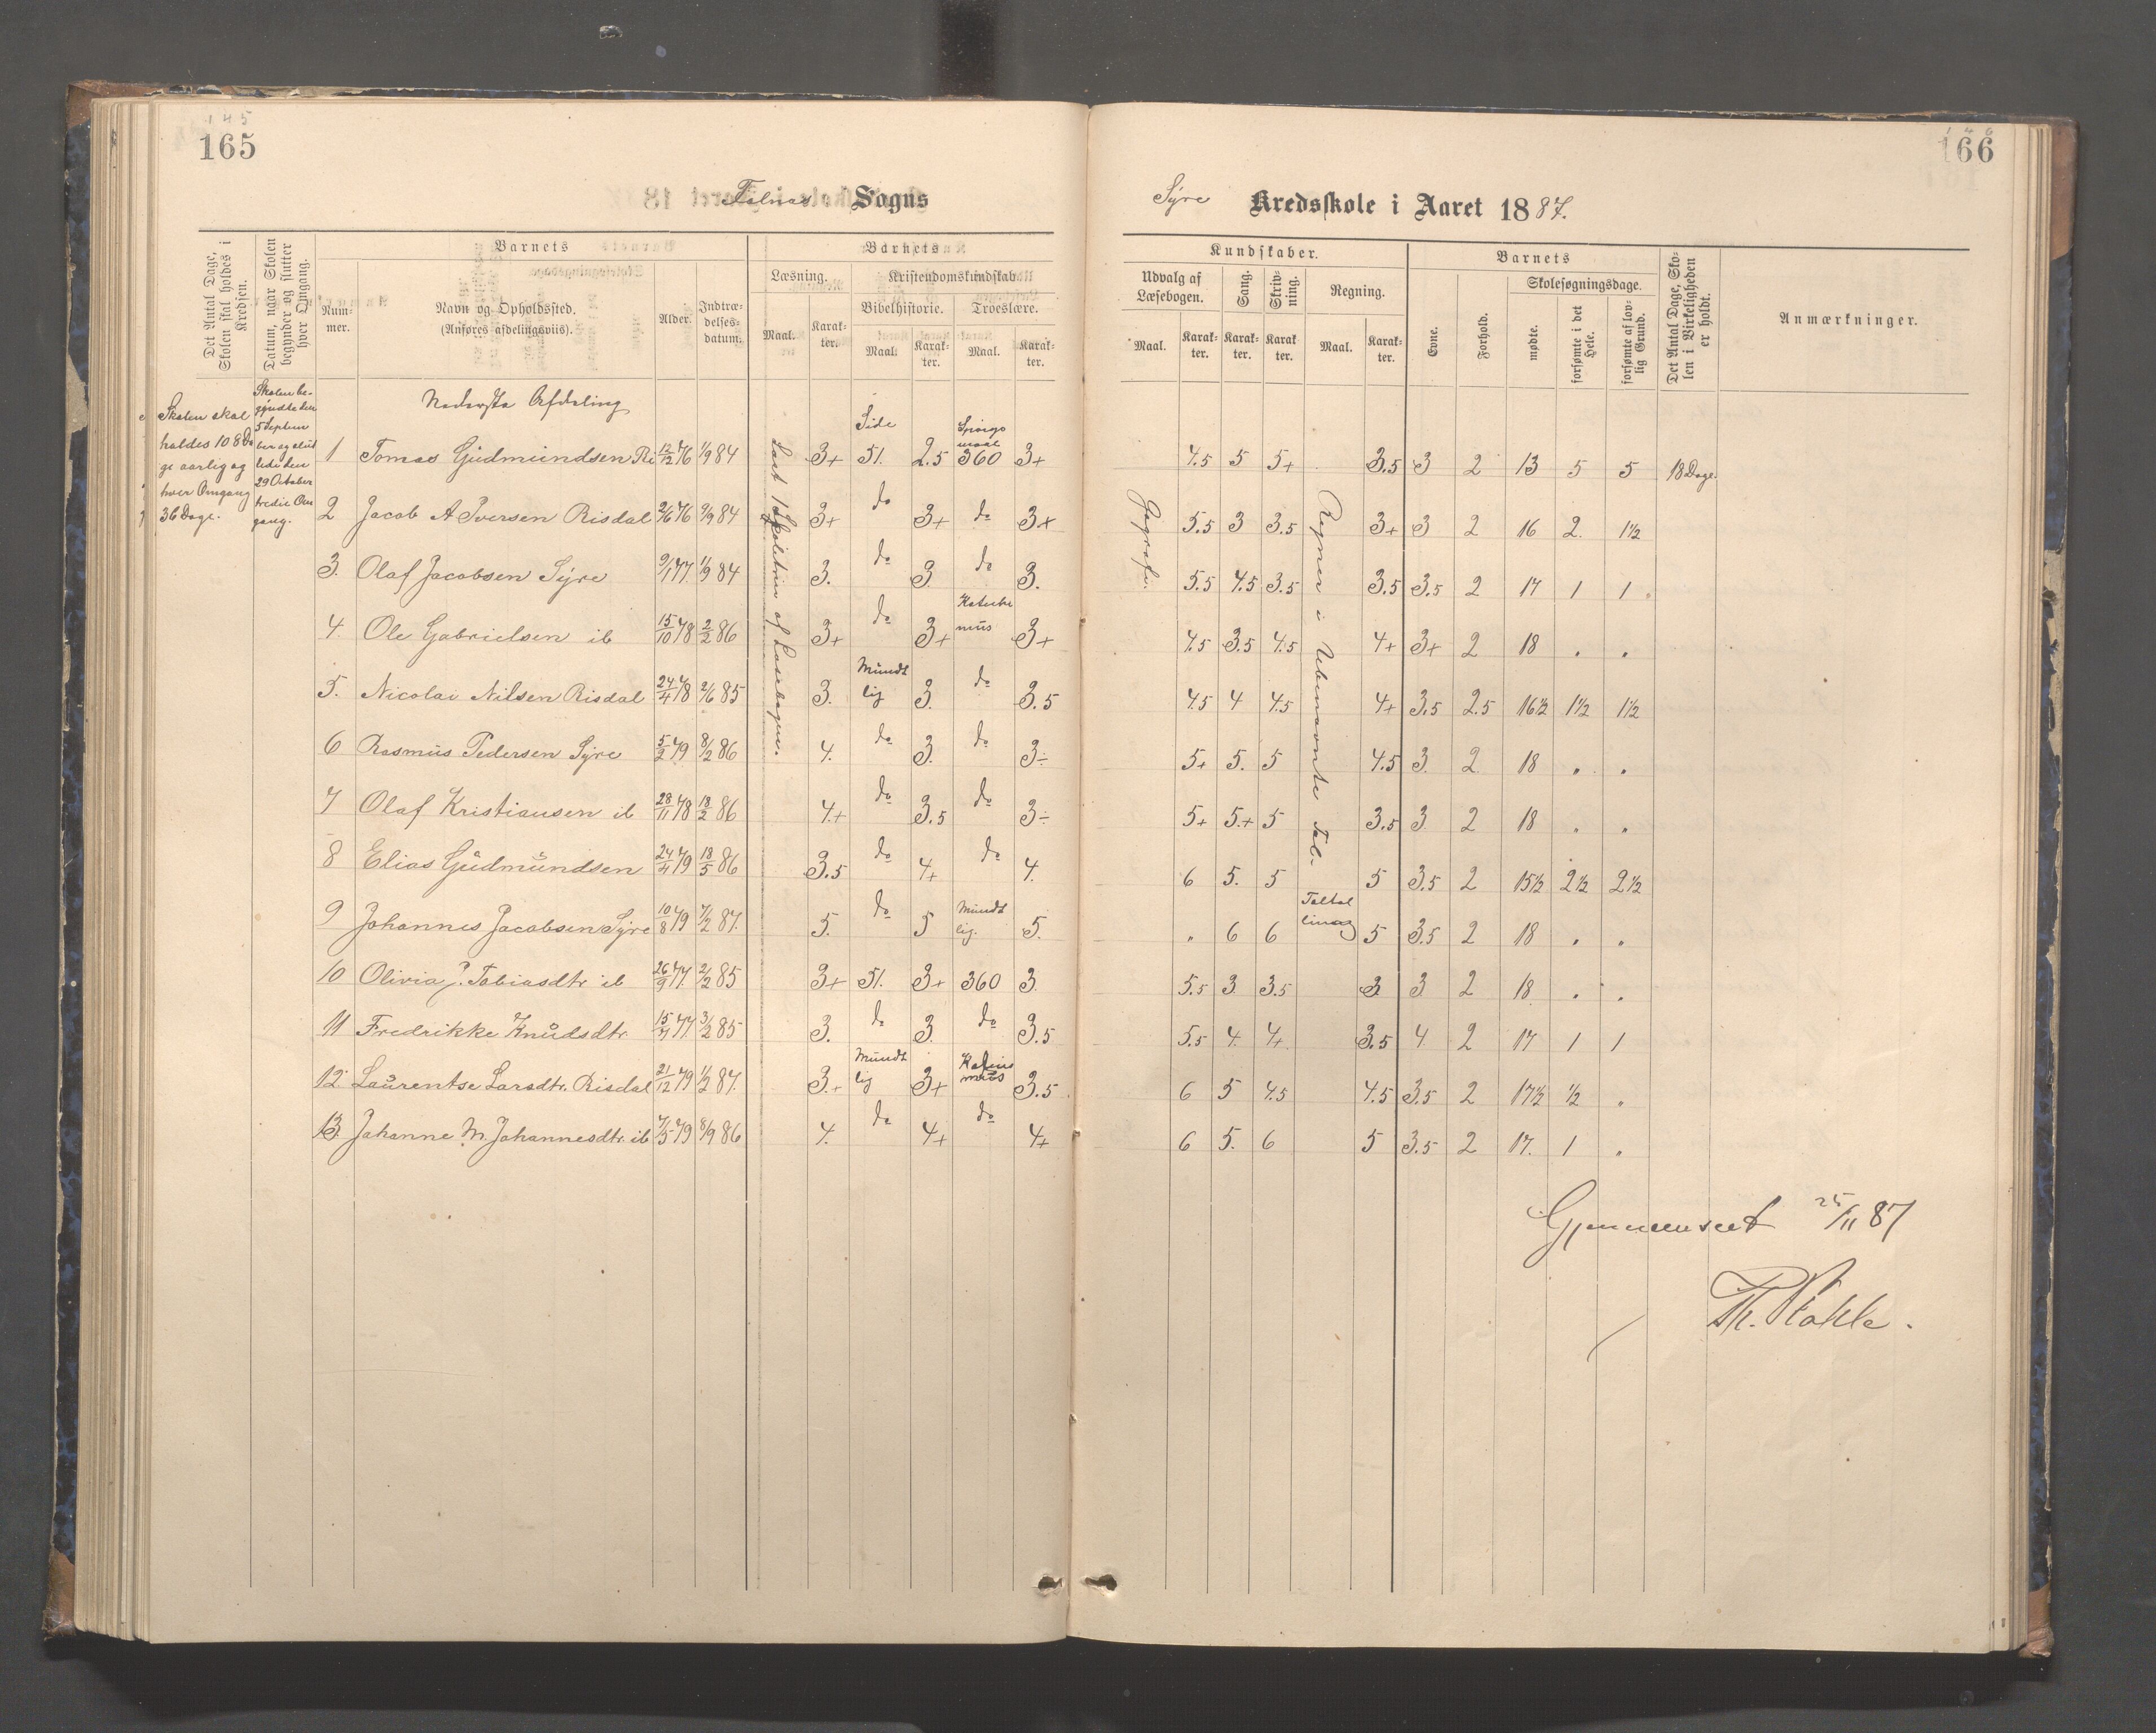 145
165
Falnæs Sogns
Det Antal Dage, Skolen skal holdes i Kredsen.
Datum, naar Skolen begynder og slutter hver Omgang.
Barnets
Num-mer.
Navn og Opholdssted.
(Anføres afdelingsviis).
Alder.
Indtræ-delses-datum.
Barnets
Læsning.
Kristendomskundskab
Bibelhistorie.
Troeslære.
Maal.
Karak-ter.
Maal.
Karak-ter.
Maal.
Karak-ter.
Skolen skal
holdes 108 Da
ge aarlig og
hver Omgang
36 Dage.
Skolen be-
gyndte den
5 Septem
ber og slut
tede den
29 October
tredie Om
gang.
Nederste Afdeling
Læst 1 Skoletrin af Læsebogen.
Side
Spørgs
maal
1 Tomas Gudmundsen Ri 12/12 76 1/9 84 3+ 51. 2.5 360 3+
2 Jacob A Iversen Risdal 2/6 76 9/9 84 3+ do 3+ do 3+
3. Olaf Jacobsen Syre 9/1 77. 1/9 84 3. do 3. do 3.
4. Ole Gabrielsen ib 15/10 78 2/2 86 3+ do 3+ Kateche
mus 3+
5. Nicolai Nilsen Risdal 24/4 78 2/6 85 3. Mundt
lig 3. do 3.5
6 Rasmus Pedersen Syre 5/2 79 8/2 86 4. do 3. do 3÷
7 Olaf Kristiansen ib 28/11 78 18/2 86 4.+ do 3.5 do 3÷
8 Elias Gudmundsen 24/4 79 18/5 86 3.5 do 4+ do 4.
9 Johannes Jacobsen Syre 10/8 79 7/2 87. 5. do 5 Mundt
lig. 5.
10 Olivia J. Tobiasdtr ib 26/9 77. 2/2 85 3+ 51. 3+ 360 3.
11 Fredrikke Knudsdtr. 15/4 77. 3/2 85 3. do 3. do 3.5
12. Laurentse Larsdtr. Risdal 21/12 79 1/2 87. 3.+ Mundt
lig 3+ 3.5
13 Johanne M. Johannesdtr. ib 7/5 79 8/9 86 4. do 4+ do 4+
146
166
Syre Kredsskole i Aaret 1887.
Kundskaber.
Udvalg af Læsebogen.
Sang.
Skriv-ning.
Regning.
Maal.
Karak-ter.
Karak-ter.
Karak ter.
Maal.
Karak-ter.
Barnets
Evne.
Forhold.
Skolesøgningsdage.
mødte.
forsømte i det Hele.
forsømte af lov-lig Grund.
Det Antal Dage, Sko-len i Virkeligheden er holdt.
Anmærkninger.
Geografi.
Regner i Ubenævnte Tal.
4.5 5 5+ 3.5 3 2 13 5 5 18 Dage.
5.5 3 3.5 3+ 3 2 16 2. 1½
5.5 4.5 3.5 3.5 3.5 2 17 1 1
4.5 3.5 4.5 4+ 3+ 2 18 " "
4.5 4 4.5 4+ 3.5 2.5 16½ 1½ 1½
5+ 5. 5 4.5 3. 2. 18 " "
5+ 5.+ 5 3.5 3 2 18 " "
6 5. 5 5 3.5 2 15½ 2½ 2½
" 6 6 5 3.5 2 18 " "
5.5 3 3.5 3 3 2 18. " "
5.5 4. 4+ 3.5 4 2 17 1 1
6 5 4.5 4.5 3.5 2 17½ ½ "
6 5. 6 5 3.5 2 17. 1 "
Gjennemseet 25/11 87